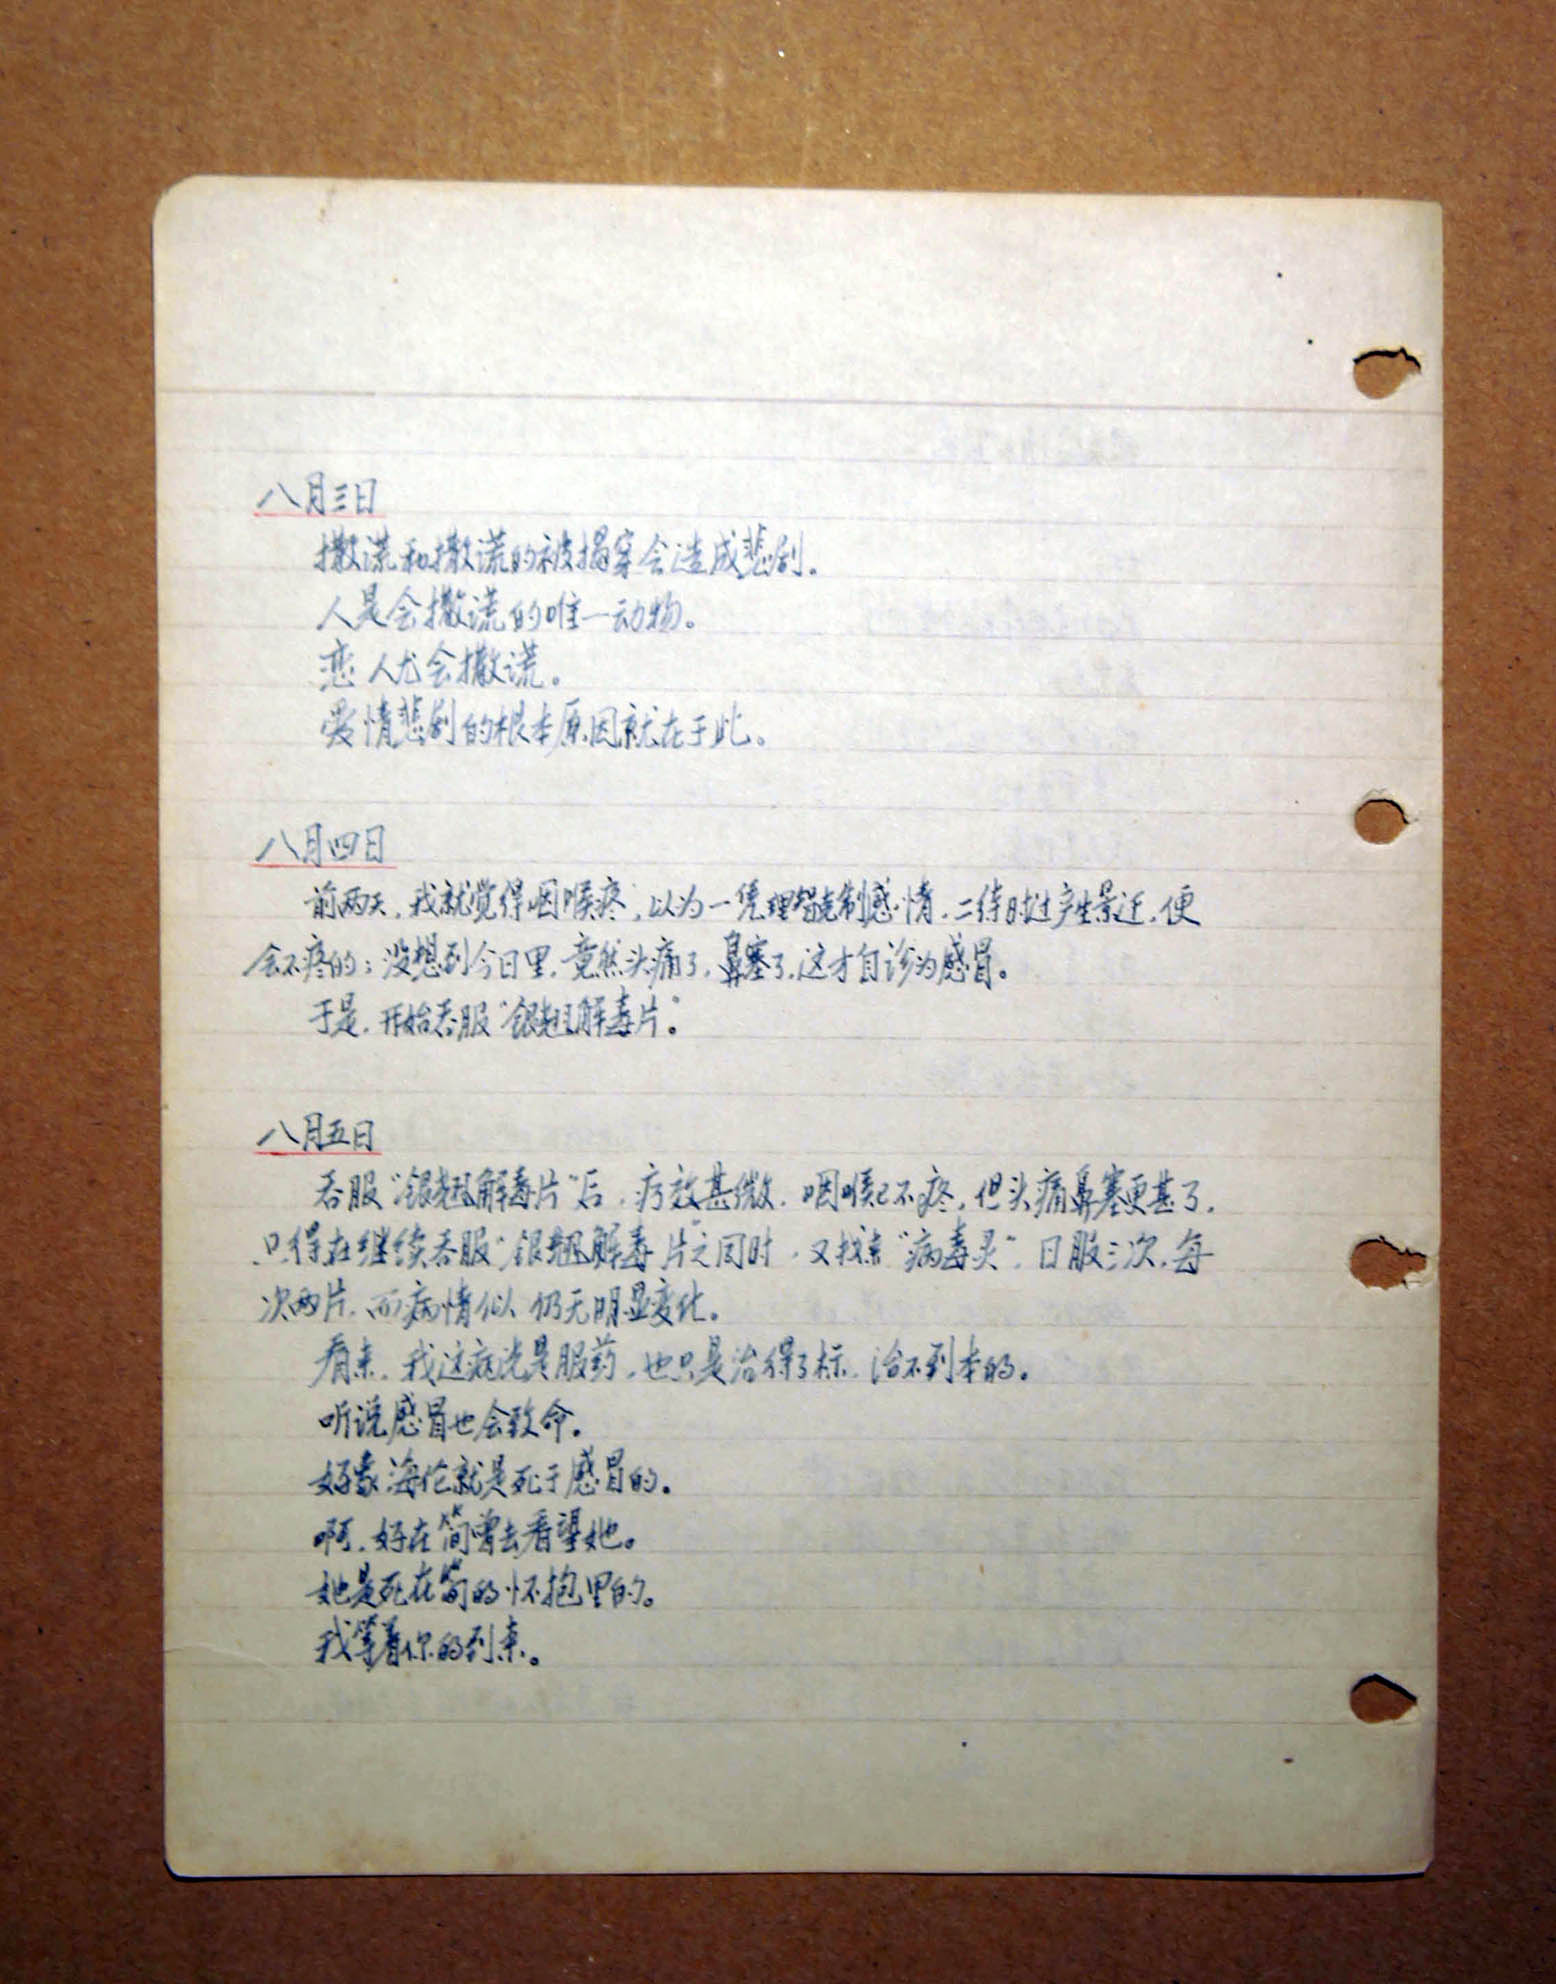 八月三日
撒谎和撒谎的被揭穿会造成悲剧。
人是会撒谎的唯一动物。
恋人尤会撒谎。
爱情悲剧的根本原因就在于此。
八月四日
前两天，我就觉得咽喉疼，以为一凭理智克制感情，二待时过产生景迁，便
会不疼的；没想到今日里，竟然头痛了，鼻塞了，这才自诊为感冒。
于是，开始吞服“银翘解毒片”。
八月五日
吞服“银翘解毒片”后，疗效甚微，咽喉已不疼，但头痛鼻塞更甚了，
只得在继续吞服“银翘解毒片”之同时，又找来“病毒灵”，日服三次，每
次两片，而病情似仍无明显变化。
看来，我这病光是服药，也只是治得了标，治不到本的。
听说感冒也会致命。
好象海伦就是死于感冒的。
啊，好在简曾去看望她。
她是死在简的怀抱里的。
我等着你的到来。